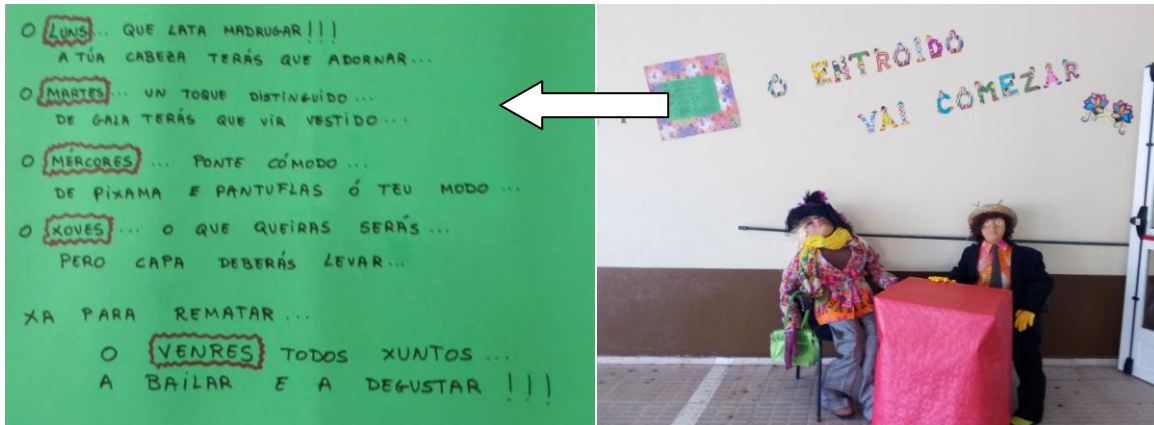 O LUNS... QUE LATA MADRUGAR!!!
A TÚA CABEZA TERÁS QUE ADORNAR...
O MARTES... UN TOQUE DISTINGUIDO...
DE GALA TERÁS QUE VIR VESTIDO...
O MÉRCORES... PONTE CÓMODO...
DE PIXAMA E PANTUFLAS Ó TEU MODO...
O XOVES... O QUE QUEIRAS SERÁS...
PERO CAPA DEBERÁS LEVAR...
XA PARA REMATAR...
O VENRES TODOS XUNTOS...
A BAILAR E A DEGUSTAR!!!
O ENTROIDO
VAI COMEZAR